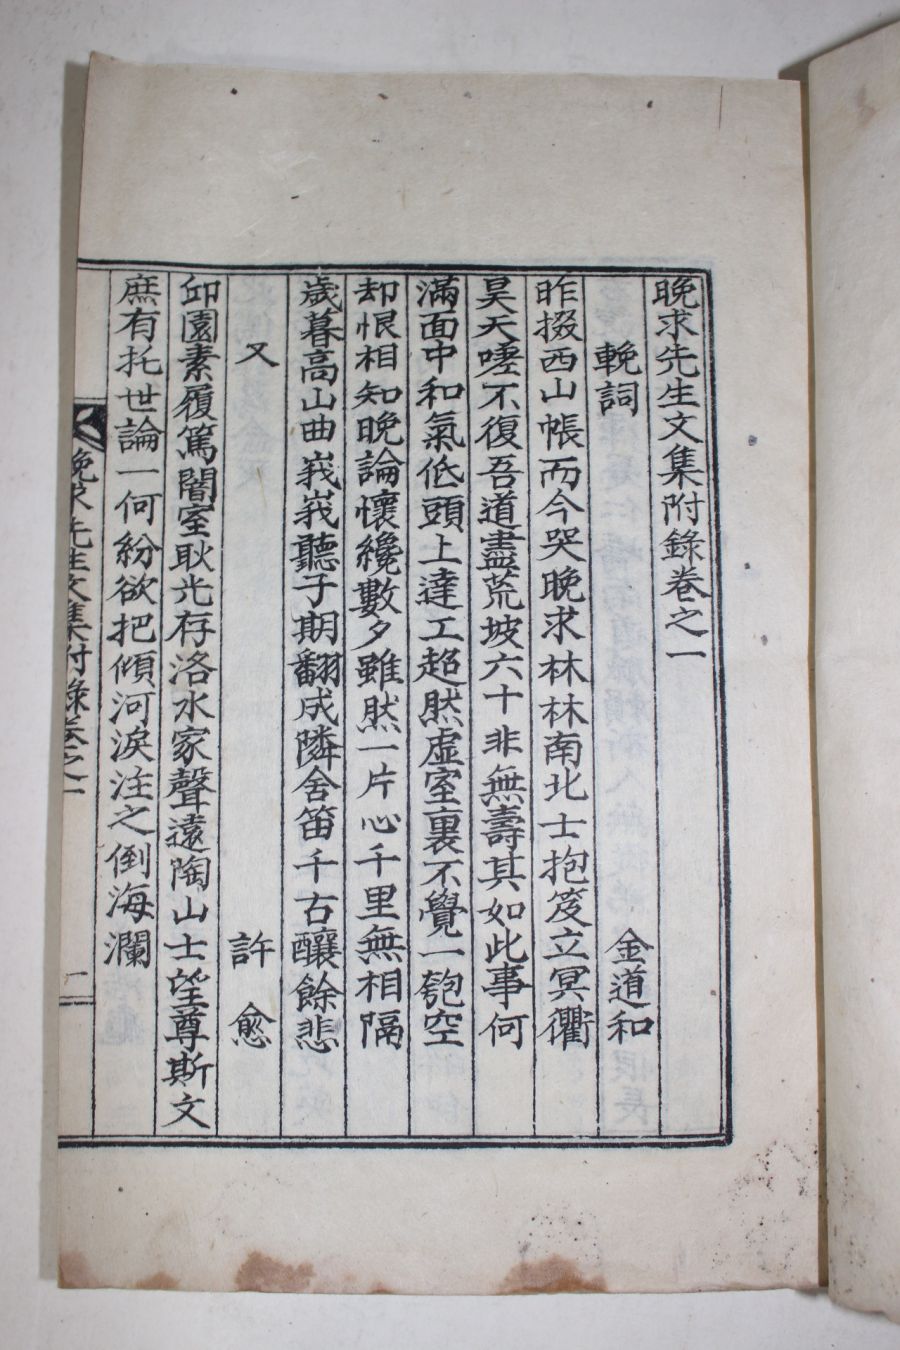 晚求先生文集附錄卷之一
輓詞 金道和
昨掇西山帳而今哭晚求林林南北士抱笈立冥衢
昊天嘊不復吾道盡荒坡六十非無壽其如此事何
滿面中和氣低頭上達工超然虛室裏不覺一匏空
却恨相知晚論懷纔數夕雖然一片心千里無相隔
歲暮高山曲峩峩聽子期翻成隣舍笛千古釀餘悲
又 許愈
邱園素履篤闇室耿光存洛水家聲遠陶山士望尊斯文
庶有托世論一何紛欲把傾河淚注之倒海瀾
晚求先生文集附錄卷之一 一